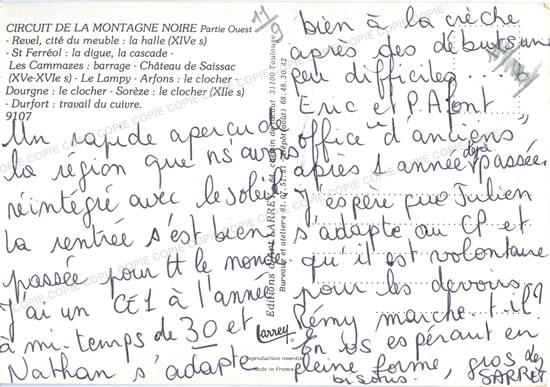 CIRCUIT DE LA MONTAGNE NOIRE Partie Ouest
- Revel, cité du meuble : la halle (XIVe s)
- St Ferréol : la digue, la cascade -
Les Cammazes : barrage - Château de Saissac
(XVe-XVIe s) - Le Lampy - Arfons : le clocher -
Dourgne : le clocher - Sorèze : le clocher (XIIe s)
- Durfort : travail du cuivre.
9107
11/9
Un rapide aperçu de
la région que ns avons
réintégré avec le soleil
la rentrée s'est bien
passée pour tt le monde
J'ai un CE1 à l'année
à mi-temps de 30 et
Nathan s'adapte
Editions d'art LARREY
31100 Toulouse
Larrey
Reproduction interdite
Made in France
bien à la crèche
après des débuts un
peu difficiles...
Eric et P.A font
office "d'anciens"
après 1 année déjà passée
J'espère que Julien
s'adapte au CP et
qu'il est volontaire
pour les devoirs.
Rémy marche-t-il?
En vs espérant en
pleine forme, gros
bisous. des SARRET
COPIE COPIE COPIE COPIE